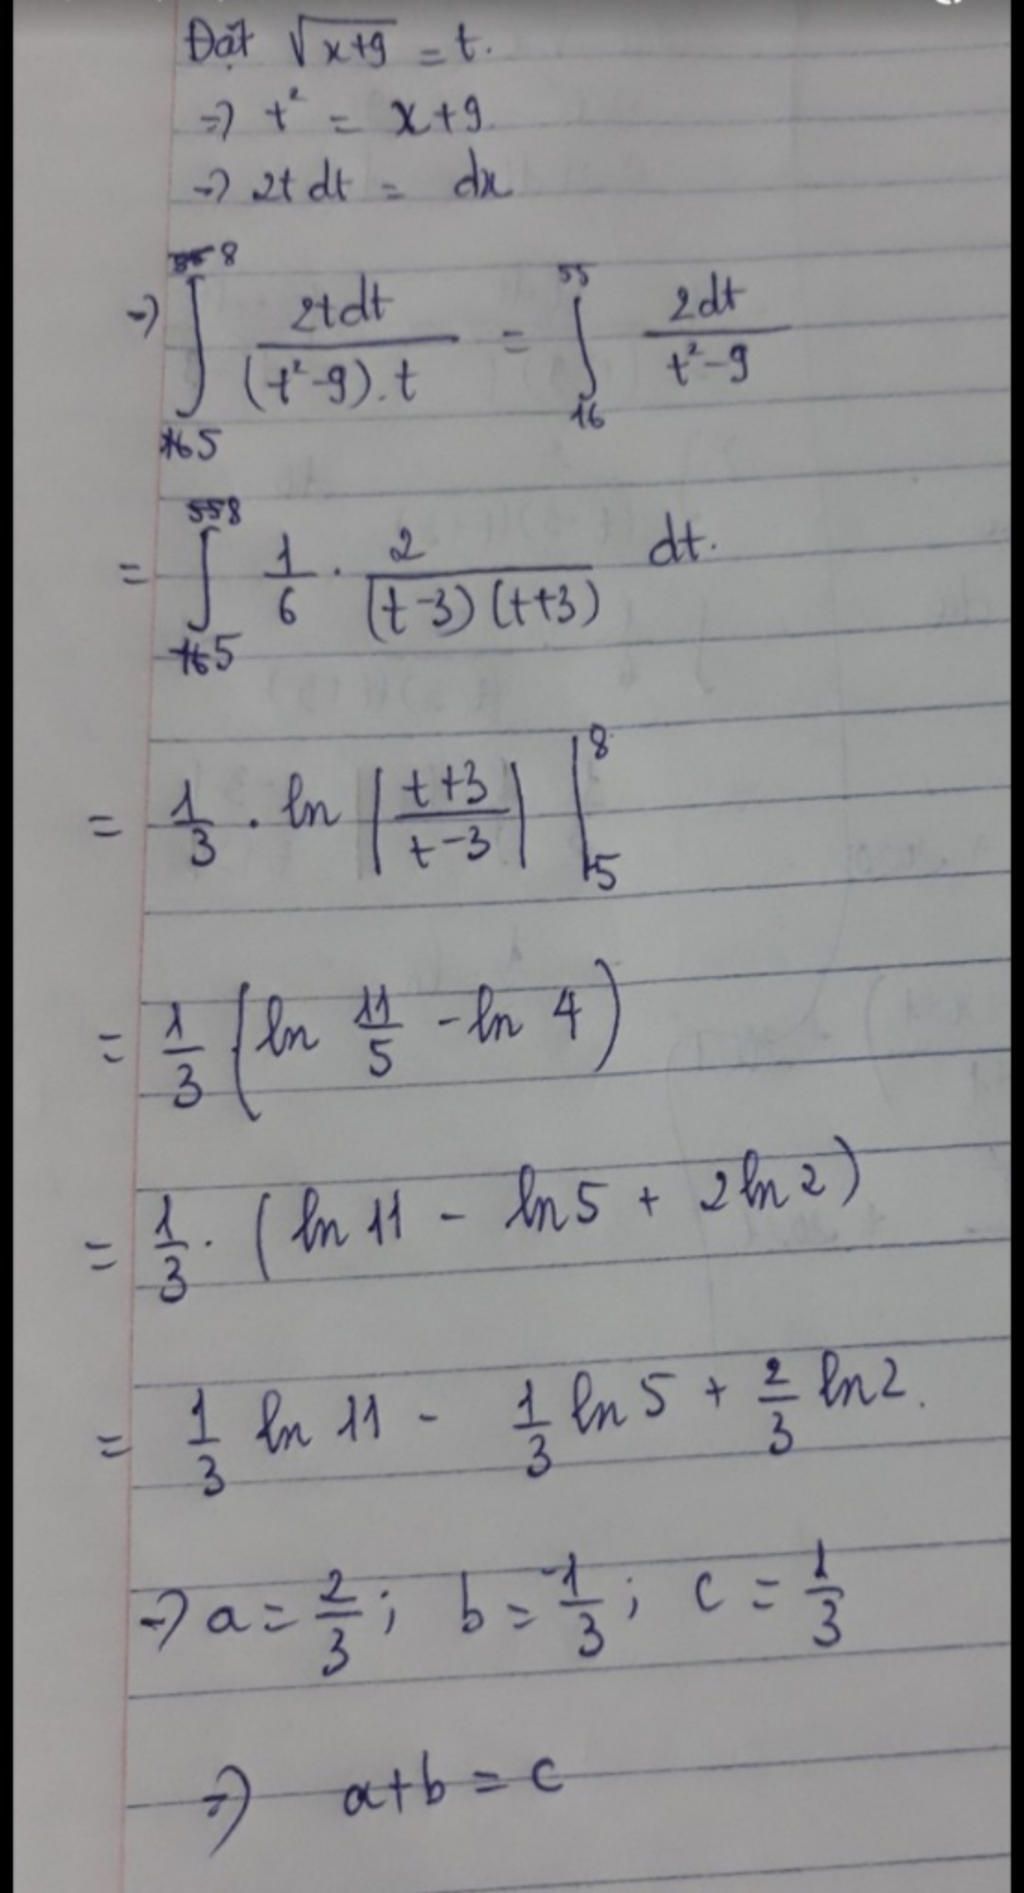 Đặt √(x+9) = t.
=> t² = x+9
=> 2t dt = dx
=> ∫₅⁸ 2tdt/((t²-9).t) = ∫₁₆⁵⁵ 2dt/(t²-9)
= ∫₅⁸ 1/6 . 2/((t-3)(t+3)) dt.
= 1/3 . ln |(t+3)/(t-3)| |₅⁸
= 1/3 (ln 11/5 - ln 4)
= 1/3 . (ln 11 - ln 5 + 2 ln 2)
= 1/3 ln 11 - 1/3 ln 5 + 2/3 ln 2.
=> a = 2/3 ; b = -1/3 ; c = 1/3
=> a+b = c